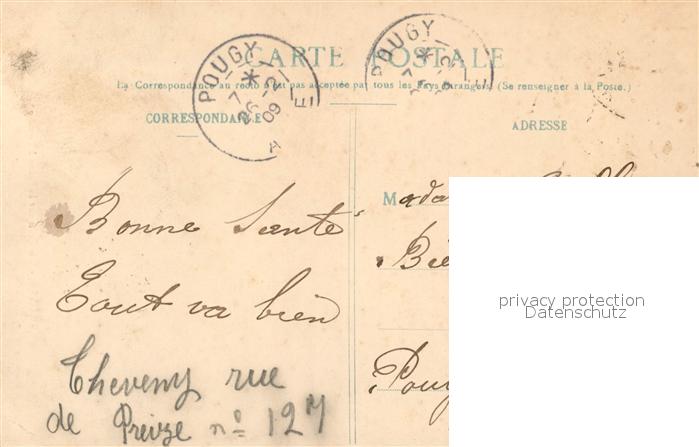 CARTE POSTALE
La Correspondance au recto n'est pas acceptée par tous les Pays étrangers. (Se renseigner à la Poste.)
POUGY
7 * 21
26 -
09
AUBE
POUGY
CORRESPONDANCE
ADRESSE
Bonne Santé
Tout va bien
Cheveny rue
de Preize nº 127
Mada
Bié
Poug
privacy protection
Datenschutz